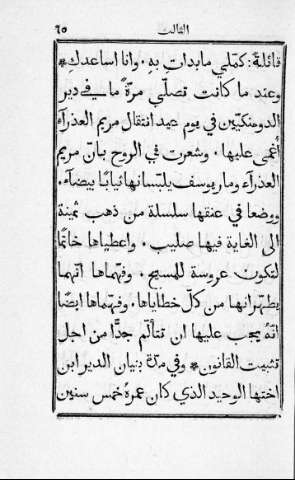 الثالث ٦٥
قائلة: كمّلي ما بدات به. وانا اساعدك *
وعند ما كانت تصلّي مرّةً ما في دير
الدومنكيّين في يوم عيد انتقال مريم العذرآء
أُغمي عليها. وشعرت في الروح بانّ مريم
العذرآء ومار يوسف يلبّسانها ثيابًا بيضآء.
ووضعا في عنقها سلسلة من ذهب ثمينة
الى الغاية فيها صليب. واعطياها خاتمًا
لتكون عروسة للمسيح. وفهّماها انّهما
يطهّرانها من كلّ خطاياها. وفهّماها ايضًا
انّهُ يجب عليها ان تتألّم جدًّا من اجل
تثبيت القانون * وفي مدّة بنيان الدير ابن
اختها الوحيد الذي كان عمرهُ خمس سنين